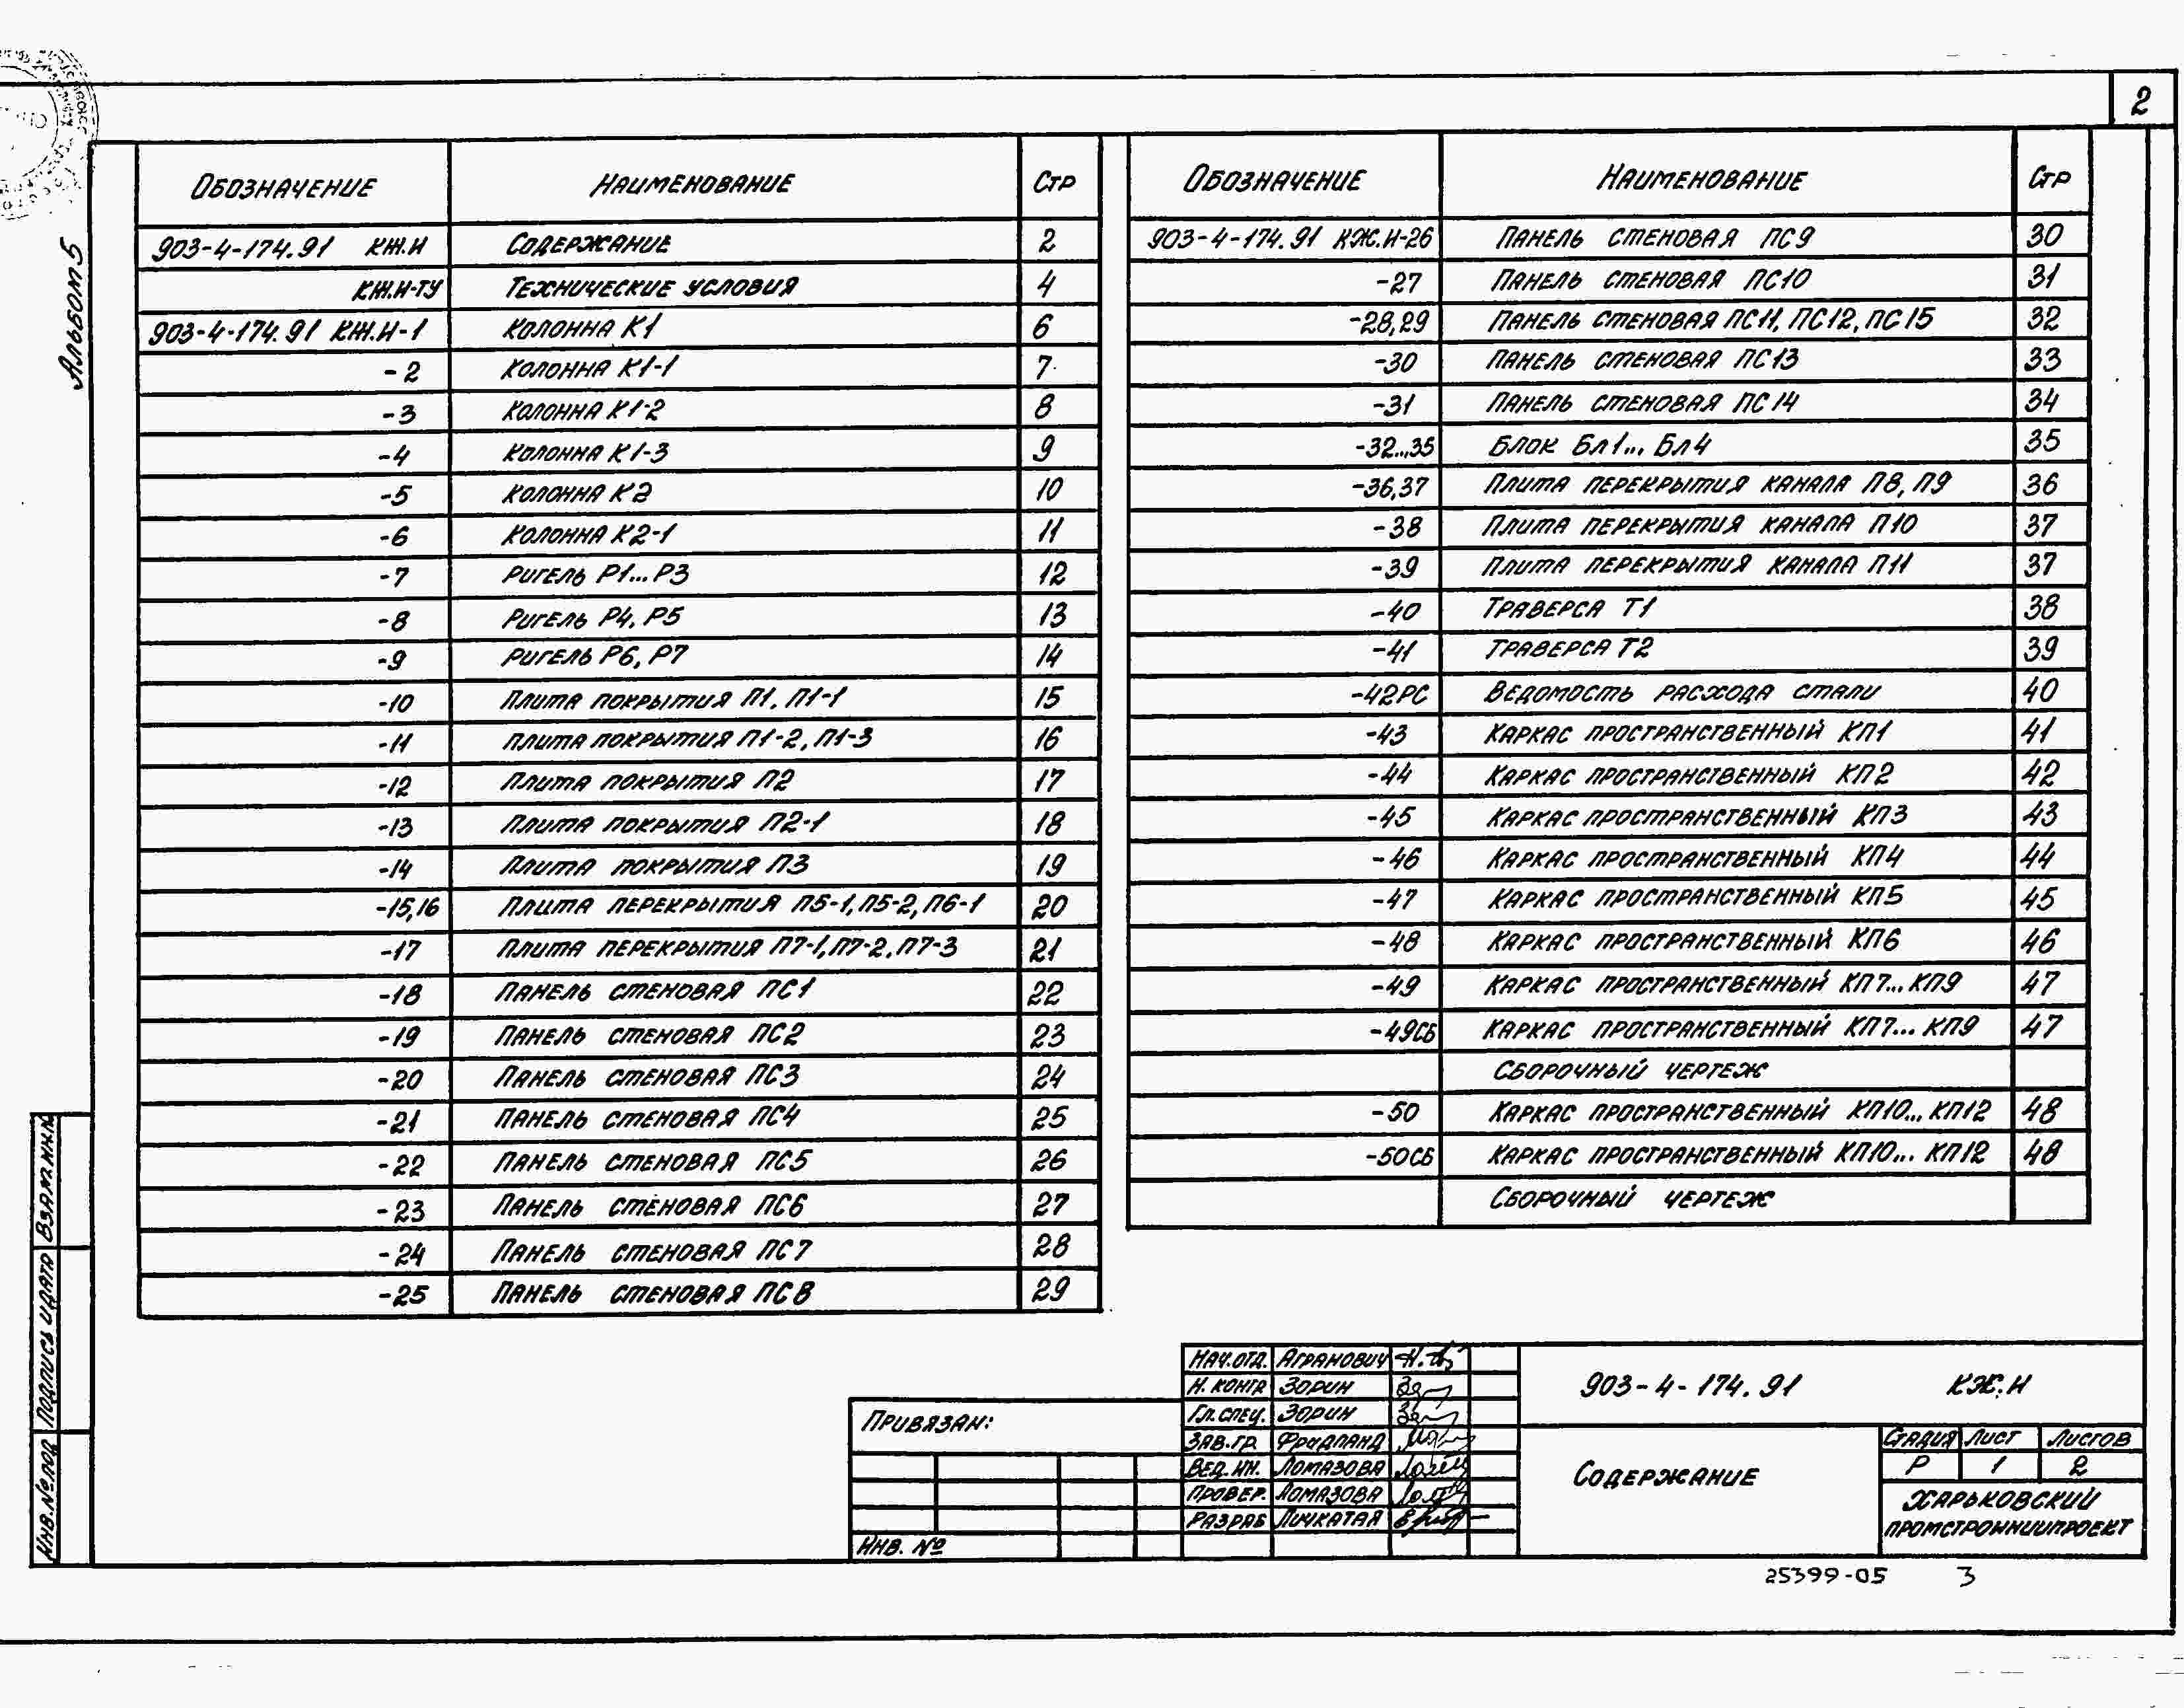 2
Альбом 5
Обозначение Наименование Стр
903-4-174.91 КЖ.И Содержание 2
КЖ.И-ТУ Технические условия 4
903-4-174.91 КЖ.И-1 Колонна К1 6
-2 Колонна К1-1 7
-3 Колонна К1-2 8
-4 Колонна К1-3 9
-5 Колонна К2 10
-6 Колонна К2-1 11
-7 Ригель Р1...Р3 12
-8 Ригель Р4, Р5 13
-9 Ригель Р6, Р7 14
-10 Плита покрытия П1, П1-1 15
-11 Плита покрытия П1-2, П1-3 16
-12 Плита покрытия П2 17
-13 Плита покрытия П2-1 18
-14 Плита покрытия П3 19
-15,16 Плита перекрытия П5-1, П5-2, П6-1 20
-17 Плита перекрытия П7-1, П7-2, П7-3 21
-18 Панель стеновая ПС1 22
-19 Панель стеновая ПС2 23
-20 Панель стеновая ПС3 24
-21 Панель стеновая ПС4 25
-22 Панель стеновая ПС5 26
-23 Панель стеновая ПС6 27
-24 Панель стеновая ПС7 28
-25 Панель стеновая ПС8 29
Обозначение Наименование Стр
903-4-174.91 КЖ.И-26 Панель стеновая ПС9 30
-27 Панель стеновая ПС10 31
-28,29 Панель стеновая ПС11, ПС12, ПС15 32
-30 Панель стеновая ПС13 33
-31 Панель стеновая ПС14 34
-32...35 Блок Бл1... Бл4 35
-36,37 Плита перекрытия канала П8, П9 36
-38 Плита перекрытия канала П10 37
-39 Плита перекрытия канала П11 37
-40 Траверса Т1 38
-41 Траверса Т2 39
-42РС Ведомость расхода стали 40
-43 Каркас пространственный КП1 41
-44 Каркас пространственный КП2 42
-45 Каркас пространственный КП3 43
-46 Каркас пространственный КП4 44
-47 Каркас пространственный КП5 45
-48 Каркас пространственный КП6 46
-49 Каркас пространственный КП7... КП9 47
-49СБ Каркас пространственный КП7... КП9 47
Сборочный чертеж
-50 Каркас пространственный КП10... КП12 48
-50СБ Каркас пространственный КП10... КП12 48
Сборочный чертеж
Инв.№под Подпись и дата Взам.инв.
Привязан:
Инв. №
Нач.отд. Агранович
Н. контр Зорин
Гл.спец. Зорин
Зав.гр. Фридланд
Вед.ин. Ломазова
Провер. Ломазова
Разраб Личкатая
903-4-174.91 КЖ.И
Содержание
Стадия Лист Листов
Р 1 2
Харьковский
Промстройниипроект
25399-05 3